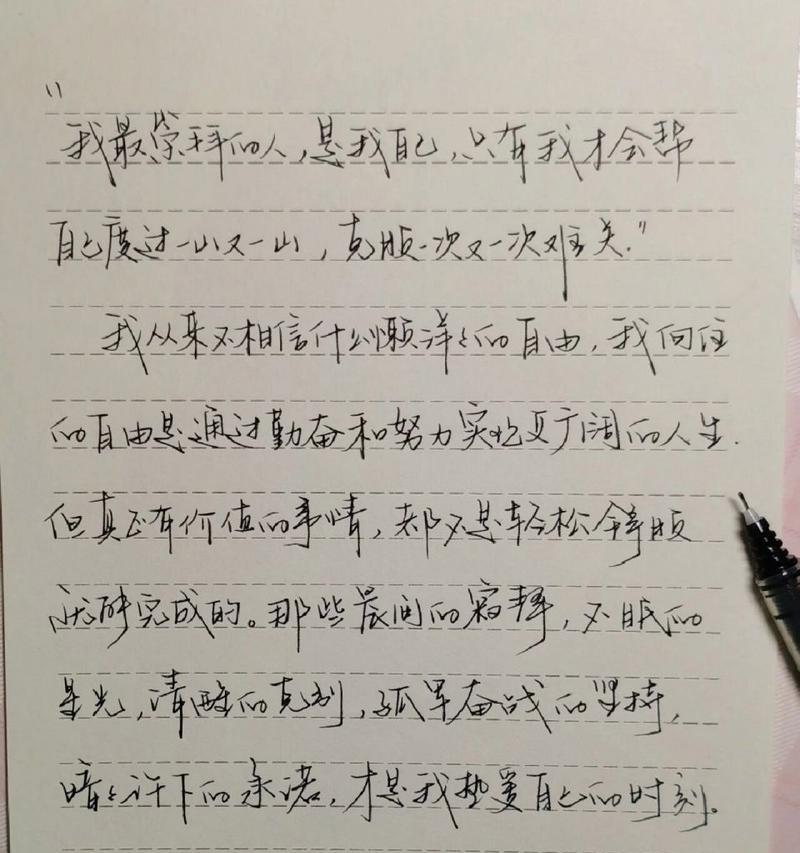 "我最崇拜的人，是我自己，只有我才会帮
自己度过一山又一山，克服一次又一次难关."
我从来不相信什么懒洋洋的自由，我向往
的自由是通过勤奋和努力实现更广阔的人生.
但真正有价值的事情，都不是轻松舒服
就能完成的。那些晨间的寂静，不眠的
星光，清醒的克制，孤军奋战的坚持，
暗暗许下的承诺，才是我热爱自己的时刻。